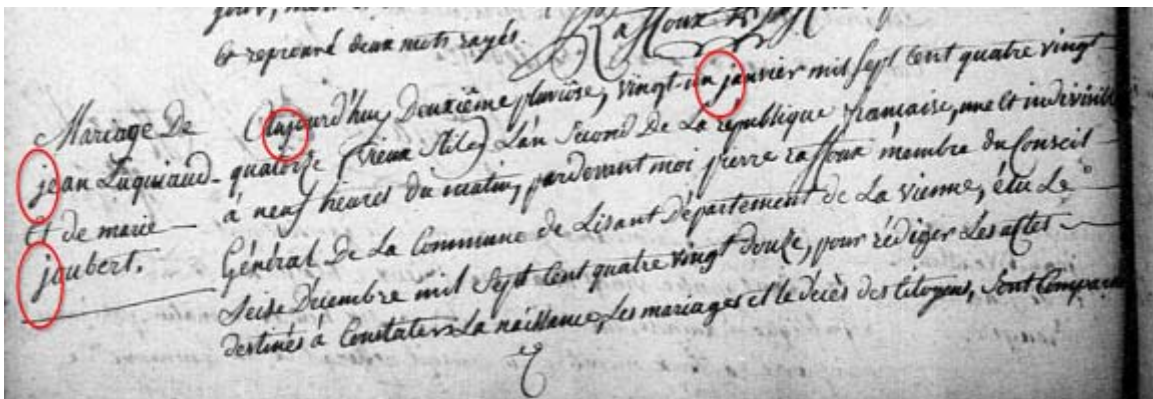 & reprouvé deux mots rayés. Raffoux
Mariage De
jean Luquiaud
Et de marie
joubert.
Aujourd'huy Deuxième pluviôse, vingt-un janvier mil sept Cent quatre vingt
quatorze (vieux Stile) L'an Second De La république francaise, une Et indivisible
à neuf heures du matin, pardevant moi pierre raffoux membre du Conseil
Général De La Commune de Lisant Département de La vienne, élu Le
Seise Décembre mil Sept Cent quatre vingt douze, pour rédiger Les actes
destinés à Constater La naissance, Les mariages et le décès des Citoyens, Sont Comparus